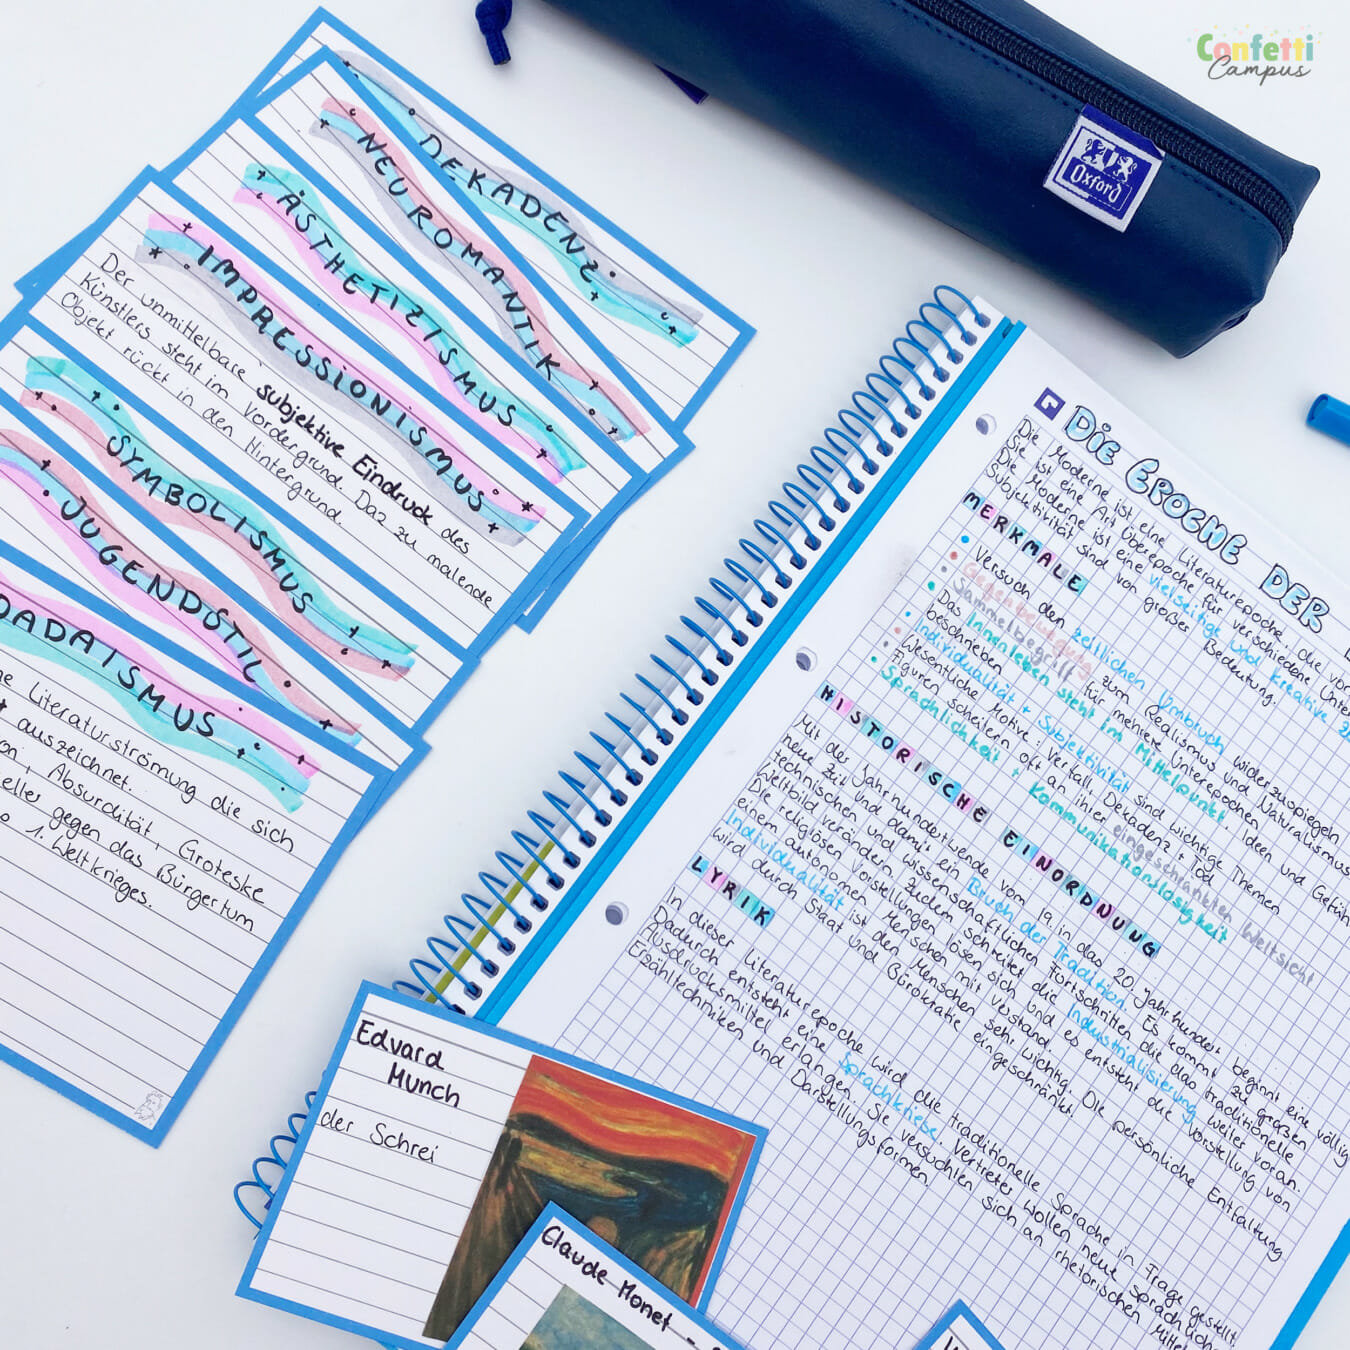 Confetti
Campus
Oxford
DEKADENZ
NEUROMANTIK
ÄSTHETIZISMUS
IMPRESSIONISMUS
Der unmittelbare subjektive Eindruck des
Künstlers steht im Vordergrund. Das zu malende
Objekt rückt in den Hintergrund.
SYMBOLISMUS
JUGENDSTIL
DADAISMUS
ne Literaturströmung die sich
auszeichnet.
on, Absurdität, Groteske
eller gegen das Bürgertum
o 1. Weltkrieges.
Edvard
Munch
der Schrei
Claude Monet -
DIE EPOCHE DER
Die Moderne ist eine Literaturepoche, die von
Sie ist eine Art Überepoche für verschiedene Unter
Die Moderne ist eine vielseitige und kreative
Subjektivität sind von großer Bedeutung.
MERKMALE
Versuch den zeitlichen Umbruch widerzuspiegeln
Gegenbewegung zum Realismus und Naturalismus
Sammelbegriff für mehrere Unterepochen
Das Innenleben steht im Mittelpunkt. Ideen und Gefüh
beschrieben
Individualität + Subjektivität sind wichtige Themen
Wesentliche Motive: Verfall, Dekadenz + Tod
Figuren scheitern oft an ihrer eingeschränkten Weltsicht
Sprachlichkeit + Kommunikationslosigkeit
HISTORISCHE EINORDNUNG
Mit der Jahrhundertwende vom 19. in das 20. Jahrhundert beginnt eine völlig
neue Zeit und damit ein Bruch der Tradition. Es kommt zu großen
technischen und wissenschaftlichen Fortschritten die das traditionelle
Weltbild verändern. Zudem schreitet die Industrialisierung weiter voran.
Die religiösen Vorstellungen lösen sich und es entsteht die Vorstellung von
einem autonomen Menschen mit Verstand.
Individualität ist den Menschen sehr wichtig. Die persönliche Entfaltung
wird durch Staat und Bürokratie eingeschränkt
LYRIK
In dieser Literaturepoche wird die traditionelle Sprache in Frage gestellt.
Dadurch entsteht eine Sprachkriese. Vertreter wollen neue sprachliche
Ausdrucksmittel erlangen. Sie versuchten sich an rhetorischen Mitte
Erzähltechniken und Darstellungsformen.